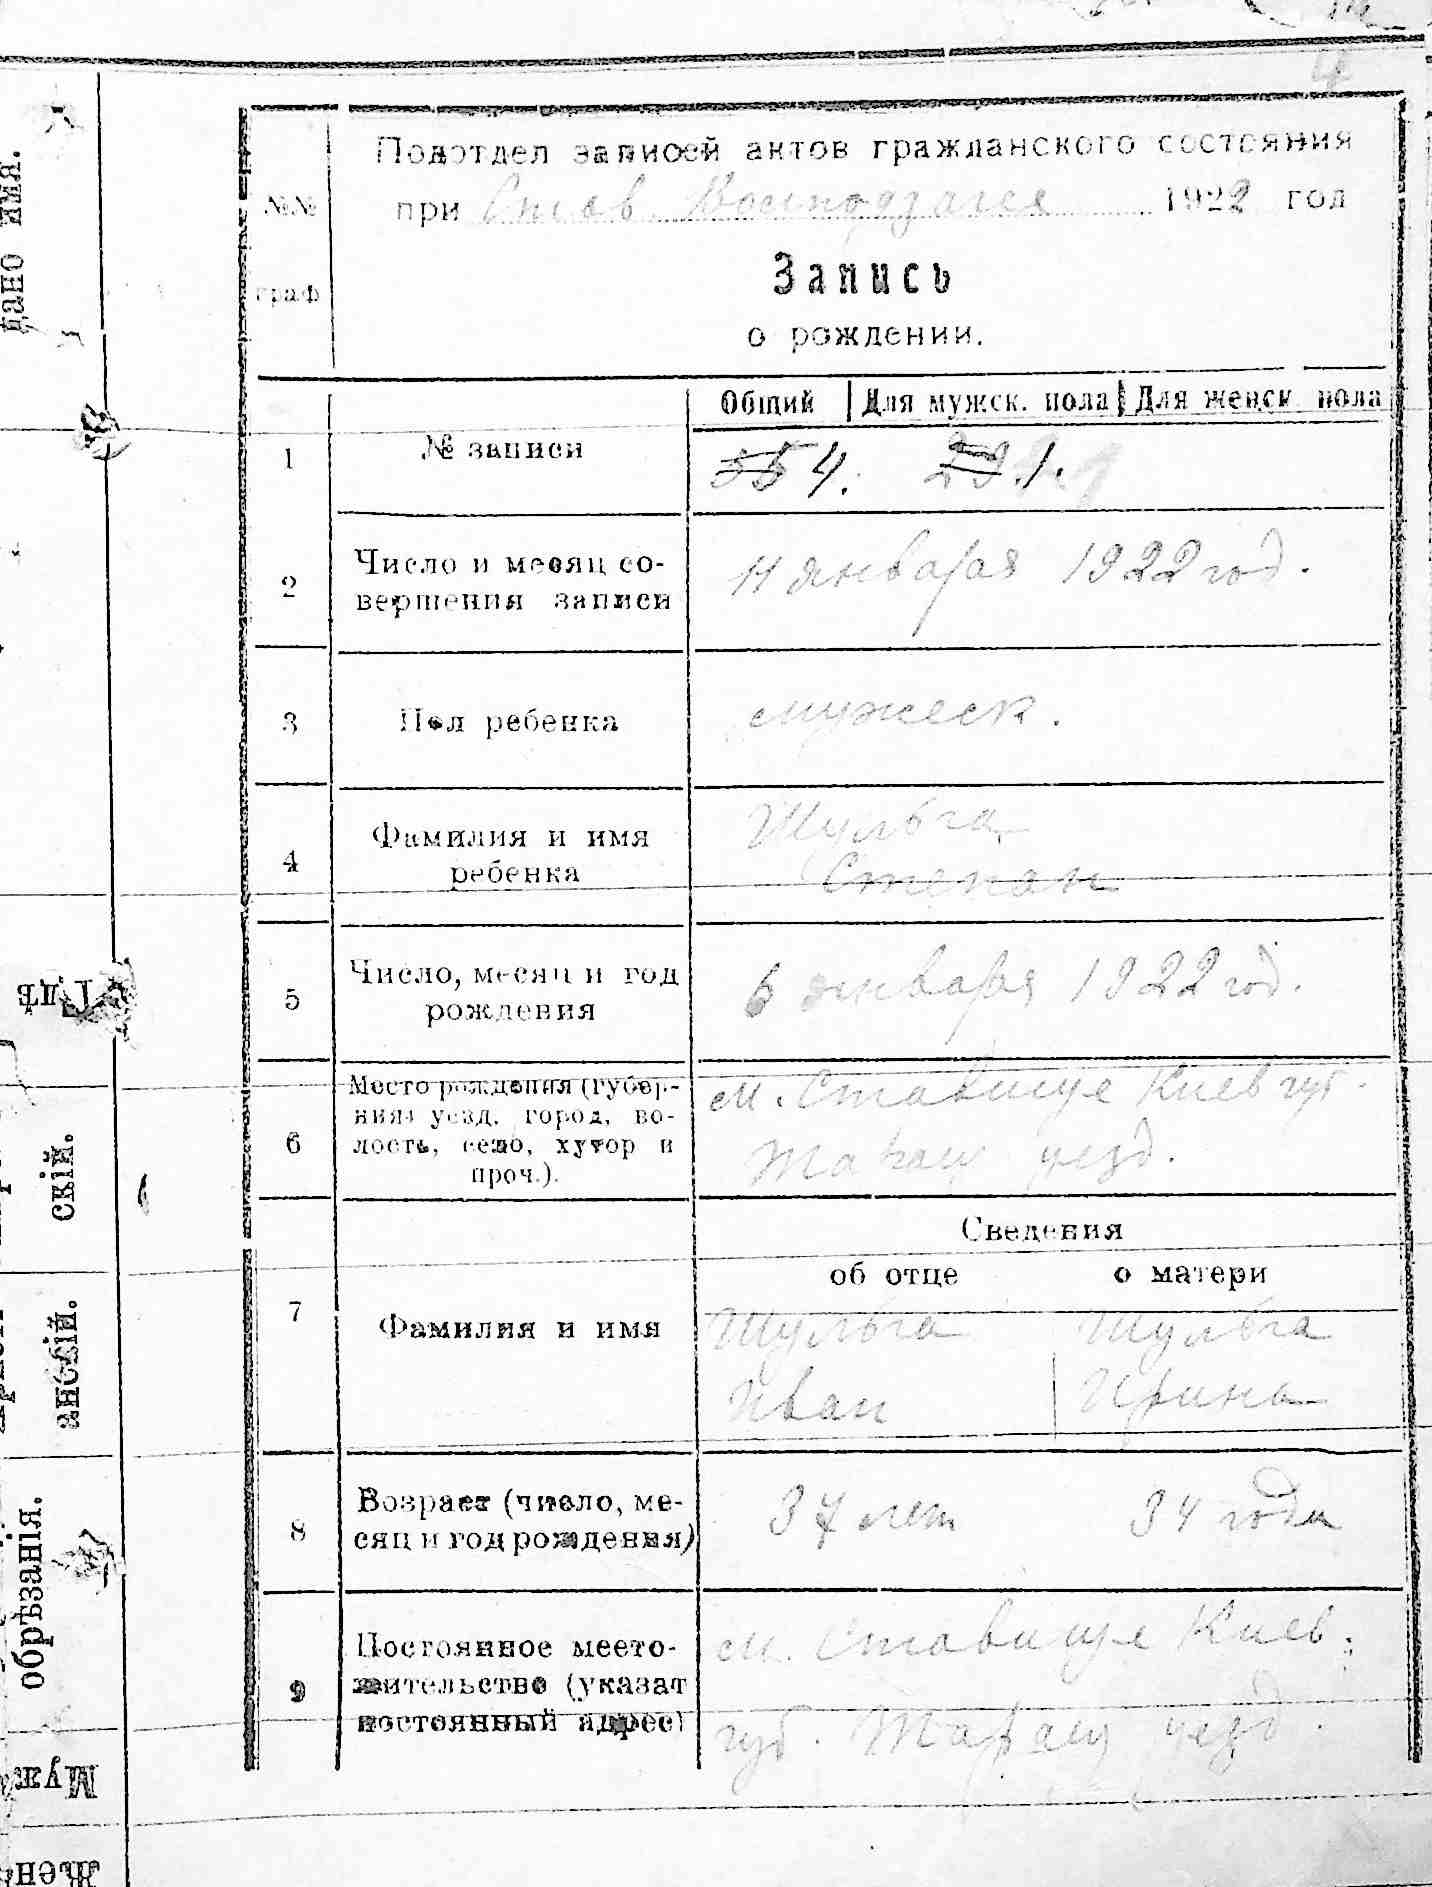 Подотдел записей актов гражданского состояния
№№
при Став. 1922 год
граф
Запись
о рождении.
Общий Для мужск. пола Для женск. пола
1 № записи 55 4. 23. 1.
2 Число и месяц со-
вершения записи
11 января 1922 год.
3 Пол ребенка мужеск.
4 Фамилия и имя
ребенка
Шульга
Степан
5 Число, месяц и год
рождения
6 января 1922 год.
6 Место рождения (губер-
ния, уезд, город, во-
лость, село, хутор и
проч.).
м. Ставище Киев губ.
Таращ уезд.
Сведения
об отце о матери
7 Фамилия и имя
Шульга Шульга
Иван Ирина
8 Возраст (число, ме-
сяц и год рождения)
37 лет 34 года
9 Постоянное место-
жительство (указат
постоянный адрес)
м. Ставище Киев.
губ. Таращ уезд.
дано имя.
Гдѣ
скій.
анскій.
обрѣзанія.
Муж
Жен